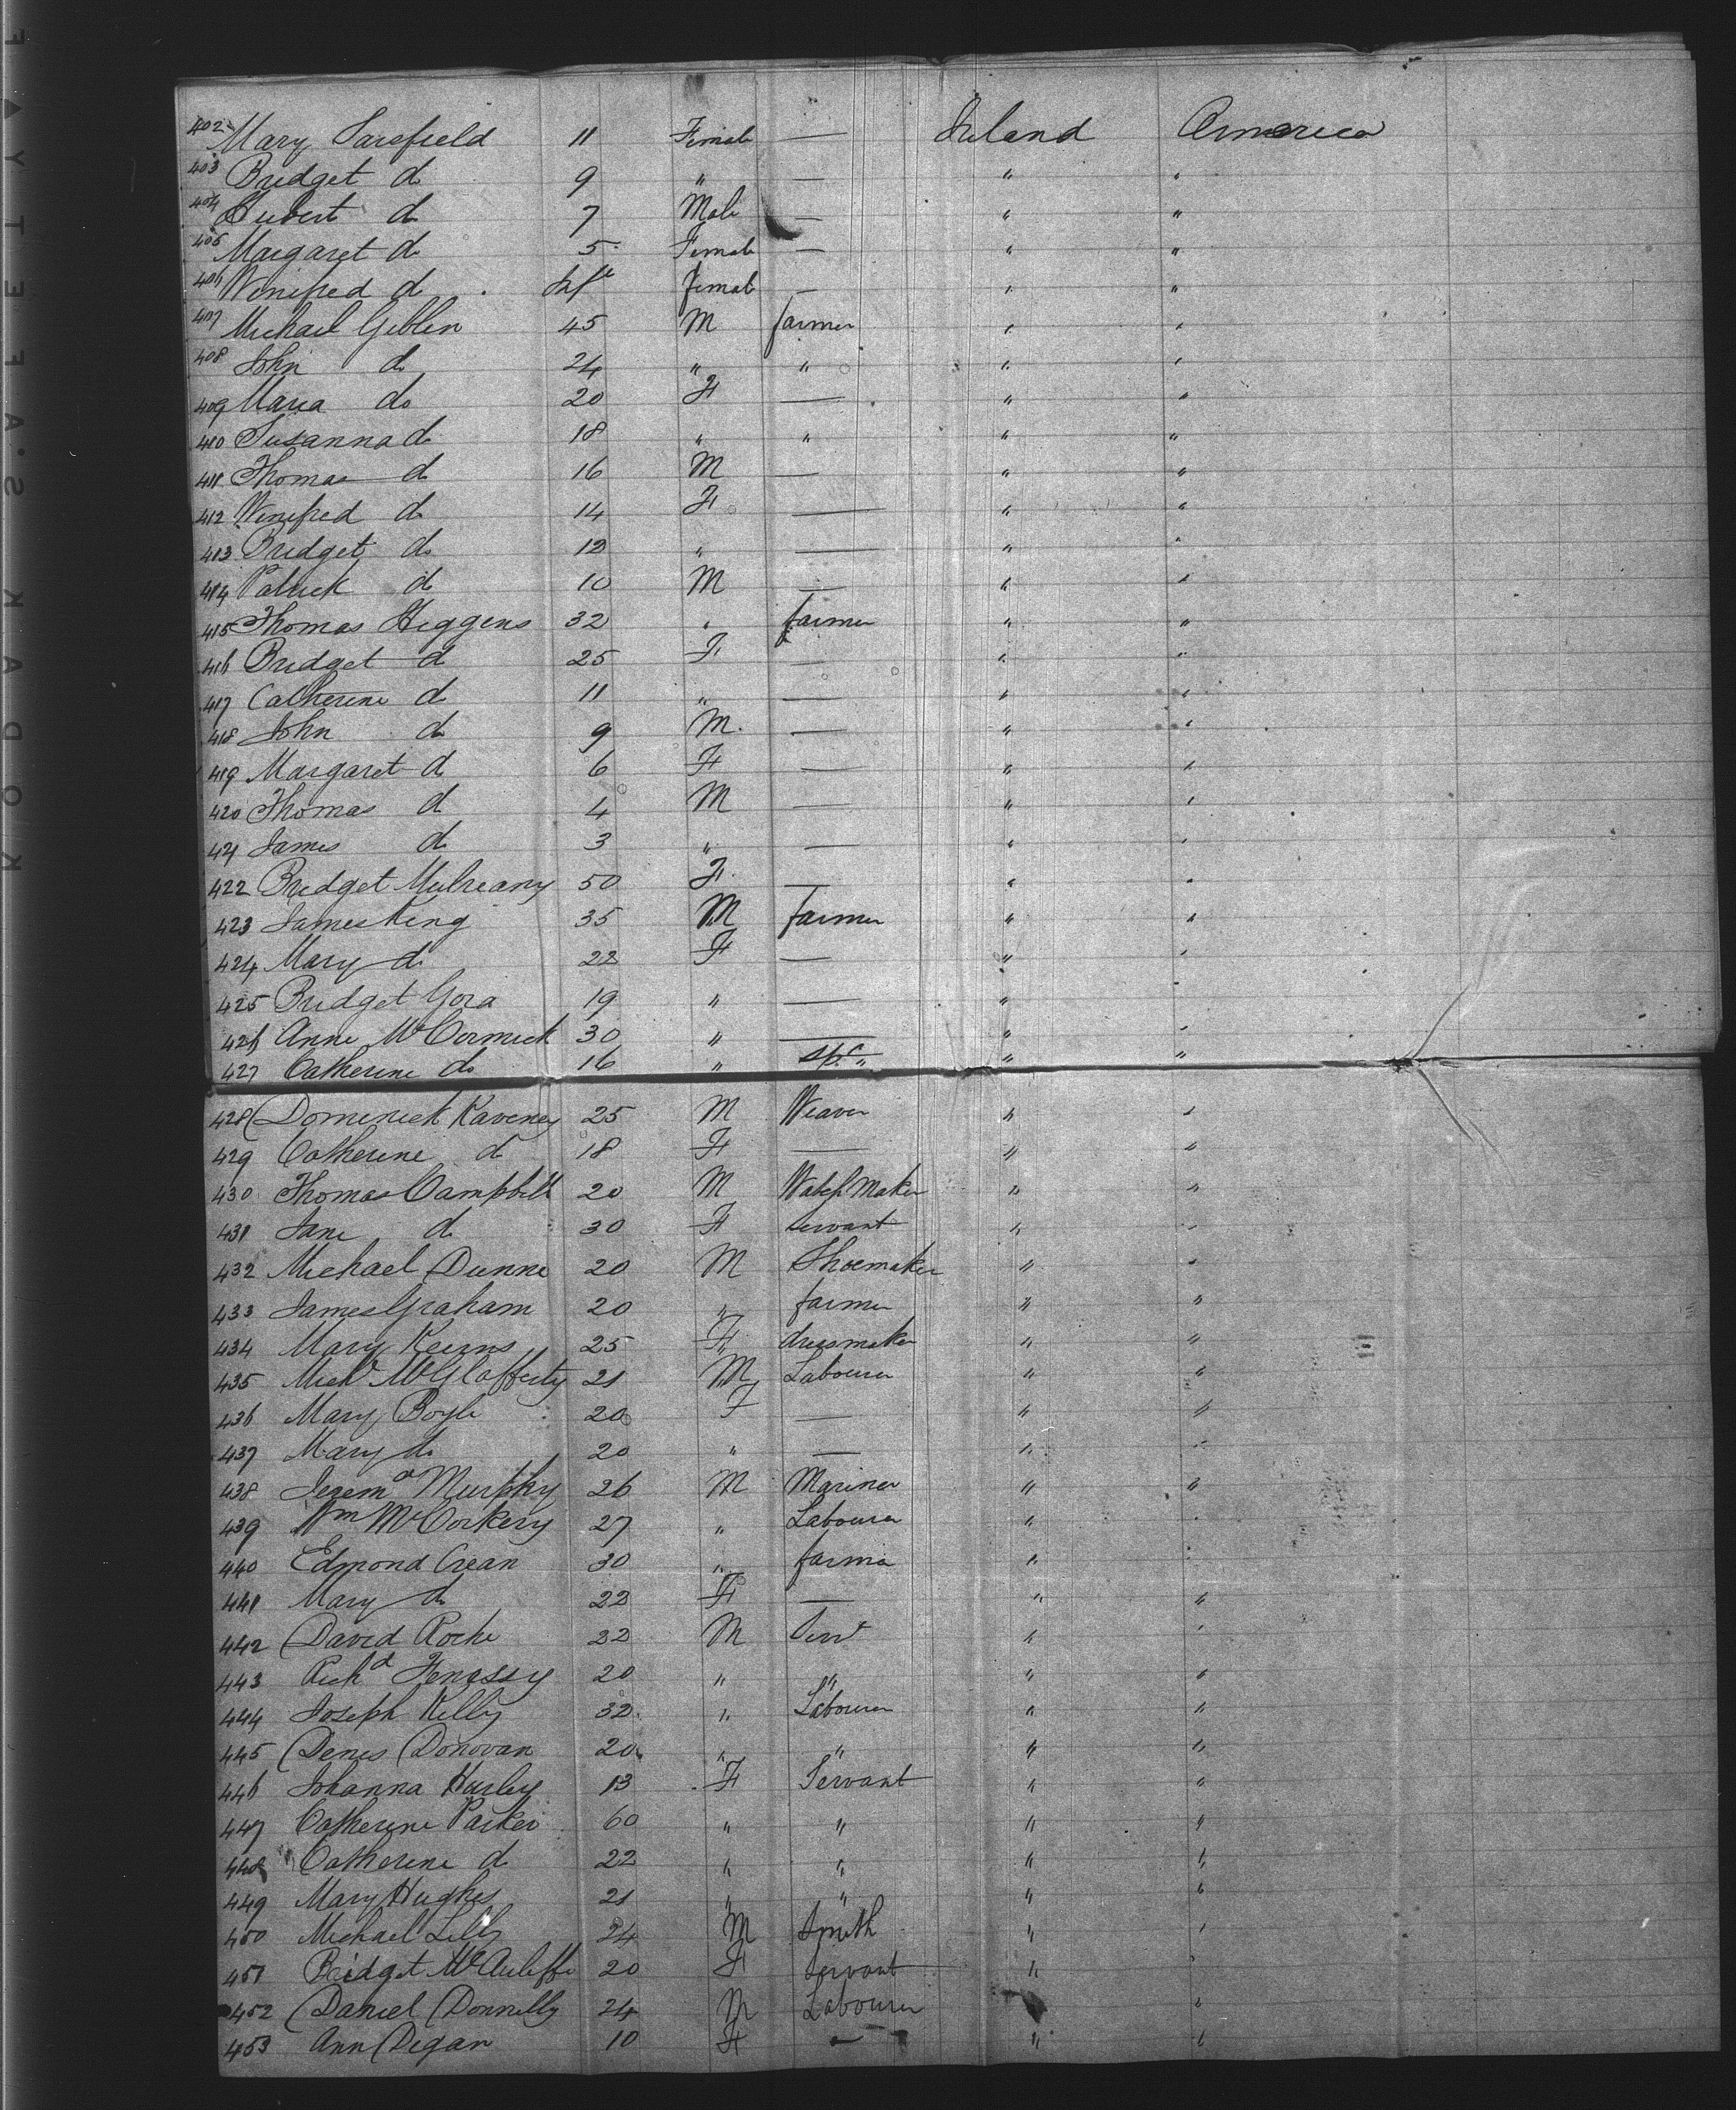 402 Mary Sarsfield 11 Female — Ireland America
403 Bridget do 9 " — " "
404 Hubert do 7 Male — " "
405 Margaret do 5 Female — " "
406 Winifred do Inft Female — " "
407 Michael Giblin 45 M farmer " "
408 John do 24 " " " "
409 Maria do 20 F — " "
410 Susanna do 18 " " " "
411 Thomas do 16 M — " "
412 Winifred do 14 F — " "
413 Bridget do 12 " — " "
414 Patrick do 10 M — " "
415 Thomas Higgens 32 " farmer " "
416 Bridget do 25 F — " "
417 Catherine do 11 " — " "
418 John do 9 M. — " "
419 Margaret do 6 F — " "
420 Thomas do 4 M — " "
421 James do 3 " — " "
422 Bridget Mulreany 50 F. — " "
423 James King 35 M farmer " "
424 Mary do 22 F — " "
425 Bridget Gora 19 " — " "
426 Anne McCormick 30 " — " "
427 Catherine do 16 " spr " "
428 Dominick Kaveney 25 M Weaver " "
429 Catherine do 18 F — " "
430 Thomas Campbell 20 M Watch Maker " "
431 Jane do 30 F servant " "
432 Michael Dunne 20 M Shoemaker " "
433 James Graham 20 " farmer " "
434 Mary Kerins 25 F dressmaker " "
435 Michl McGlafferty 21 M Labourer " "
436 Mary Boyle 20 F — " "
437 Mary do 20 " — " "
438 Jerema Murphy 26 M Mariner " "
439 Wm McCorkery 27 " Labourer " "
440 Edmond Crean 30 " farmer " "
441 Mary do 22 F — " "
442 David Roche 22 M Servt " "
443 Richd Fenassy 20 " " " "
444 Joseph Kelly 32 " Labourer " "
445 Denis Donovan 20 " " " "
446 Johanna Hurley 13 F Servant " "
447 Catherine Parker 60 " " " "
448 Catherine do 22 " " " "
449 Mary Hughes 21 " " " "
450 Michael Lilly 24 M Smith " "
451 Bridget McAuliffe 20 F Servant " "
452 Daniel Donnelly 24 M Labourer "
453 Ann Degan 10 F — " "
KODAK·SAFETY